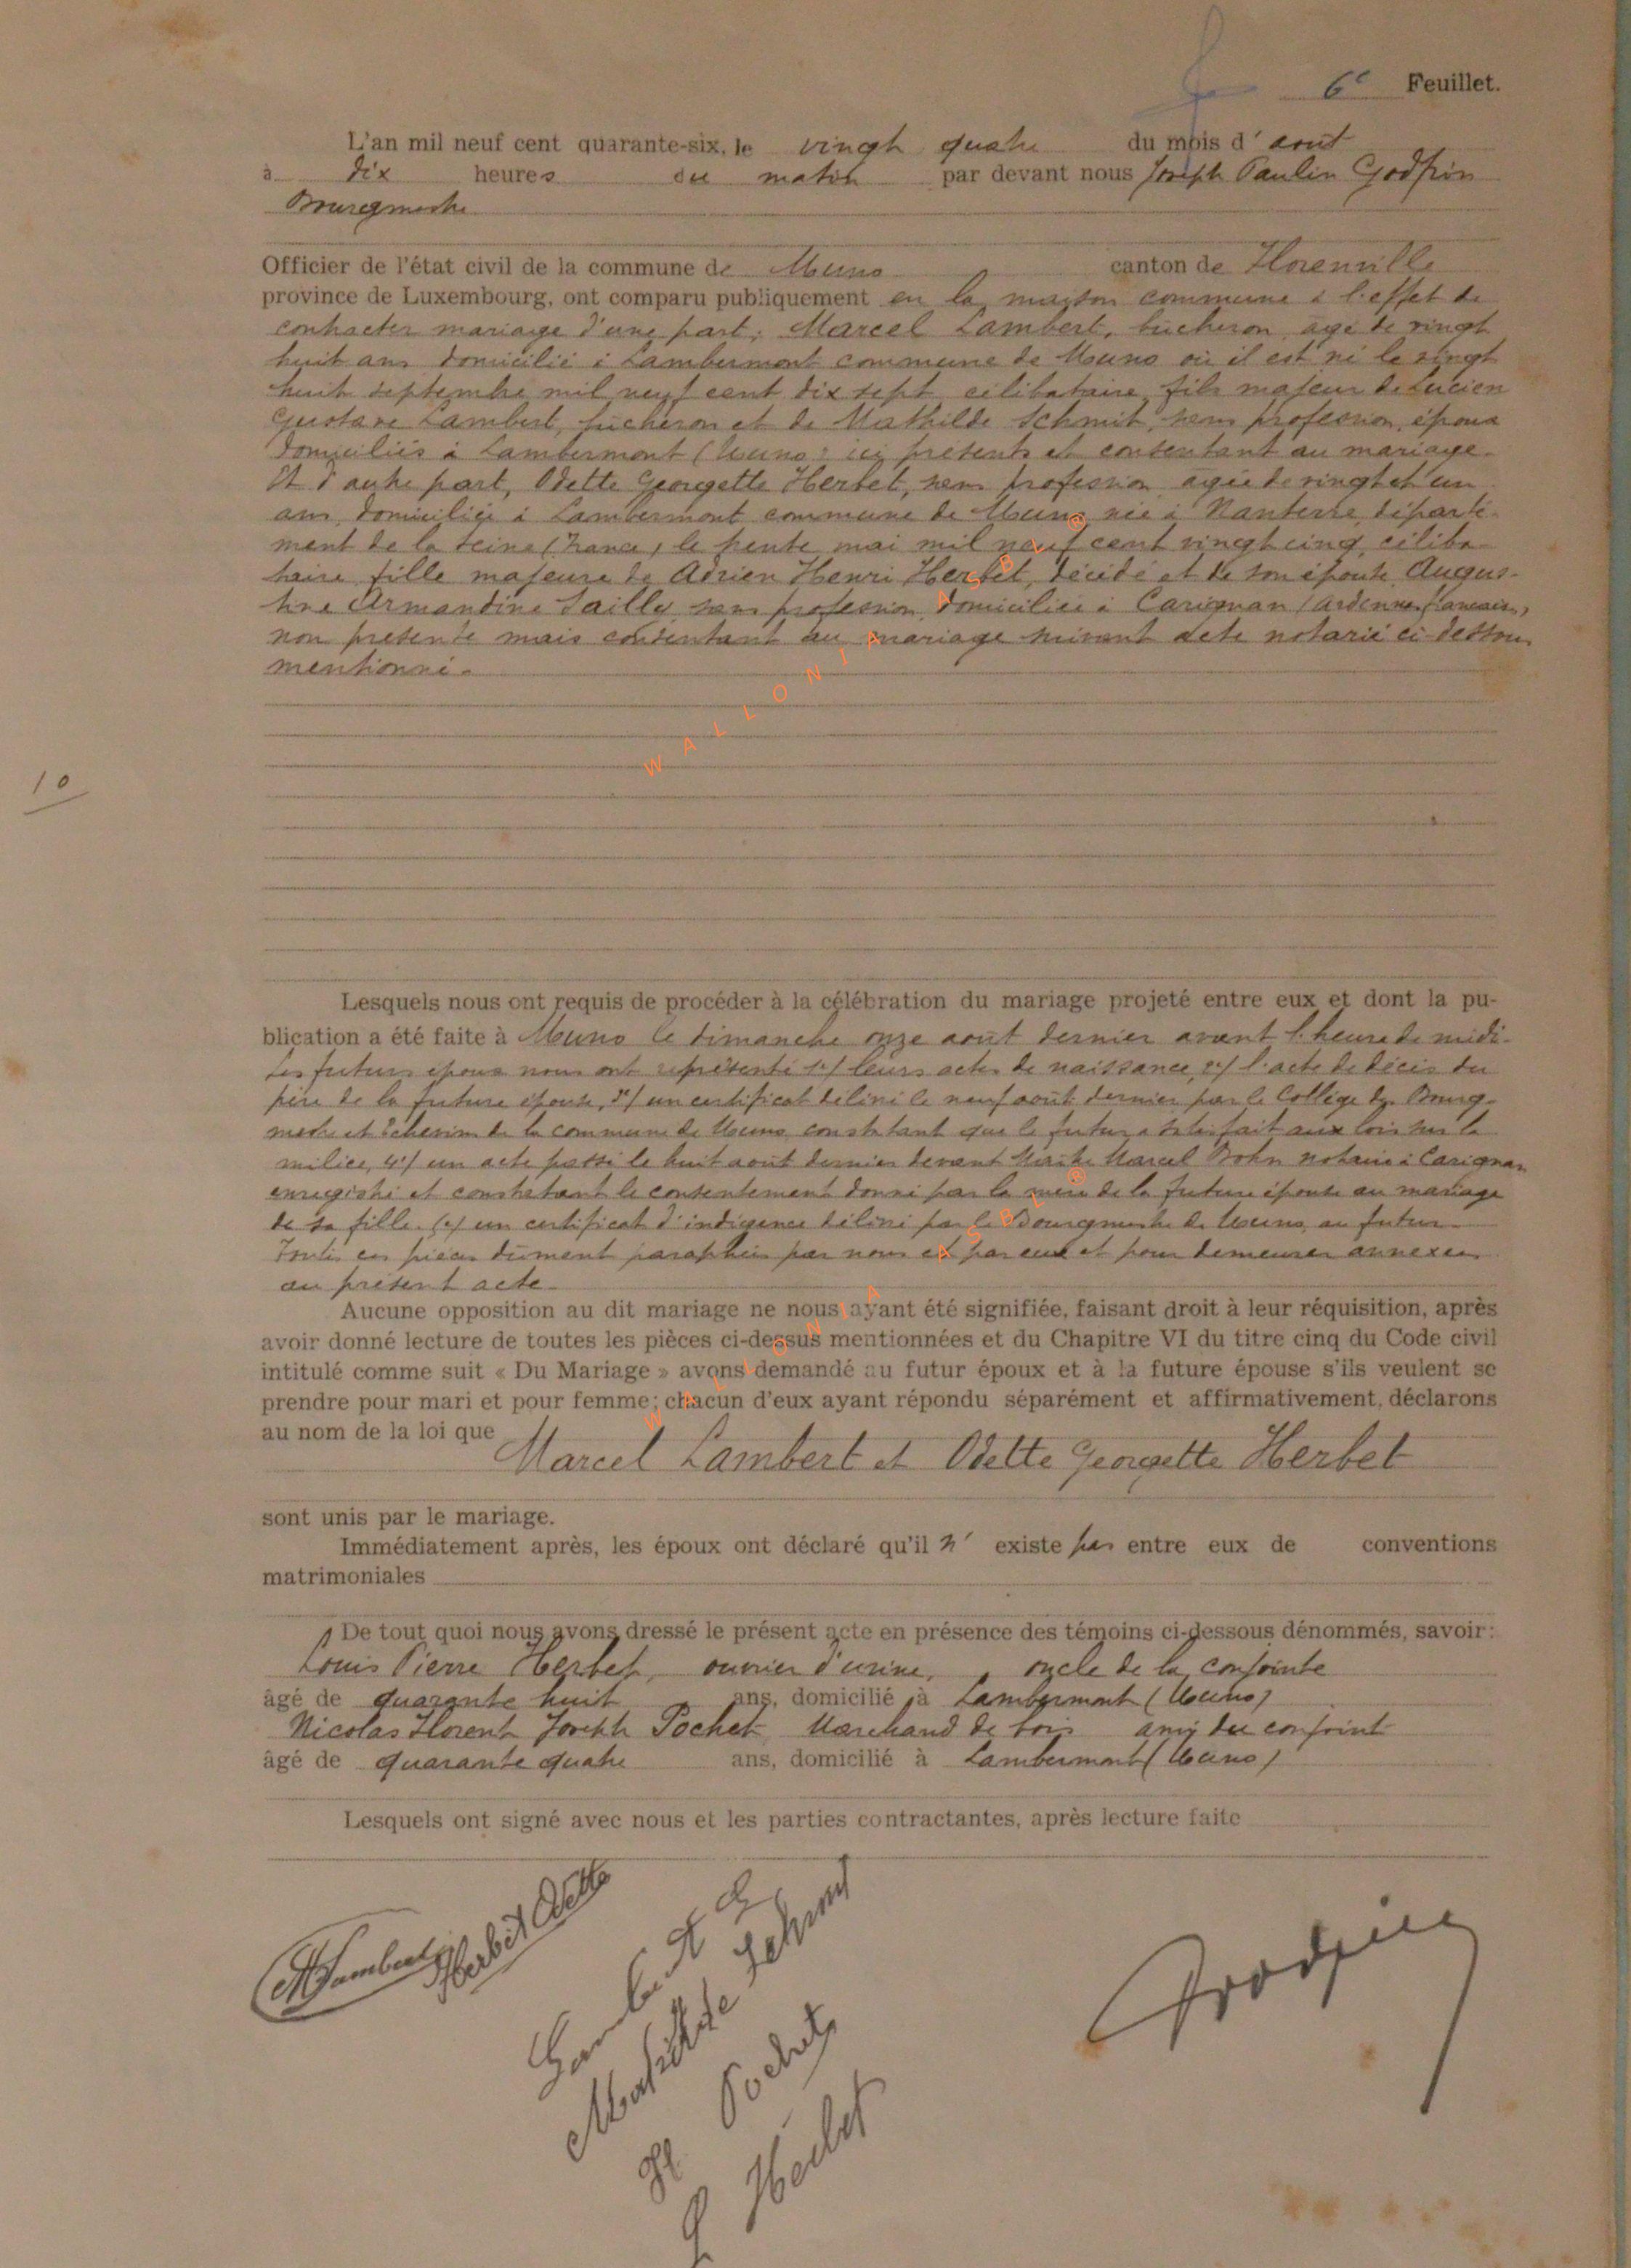 6e Feuillet.
L'an mil neuf cent quarante-six, le vingt quatre du mois d' août
à dix heures du matin par devant nous Joseph Paulin Godfrin
Bourgmestre
Officier de l'état civil de la commune de Muno canton de Florenville
province de Luxembourg, ont comparu publiquement en la maison commune à l'effet de
contracter mariage d'une part, Marcel Lambert, bûcheron, âgé de vingt
huit ans domicilié à Lambermont commune de Muno où il est né le vingt
huit septembre mil neuf cent dix sept célibataire, fils majeur de Lucien
Gustave Lambert, bûcheron et de Mathilde Schmit, sans profession, époux
domiciliés à Lambermont (Muno) ici présents et consentant au mariage.
Et d'autre part, Odette Georgette Herbet, sans profession, âgée de vingt et un
ans, domiciliée à Lambermont commune de Muno née à Nanterre, départe-
ment de la Seine (France), le trente mai mil neuf cent vingt cinq, céliba-
taire, fille majeure de Adrien Henri Herbet, décédé et de son épouse Augus-
tine Armandine Sailly, sans profession, domiciliée à Carignan (Ardennes françaises)
non présente mais consentant au mariage suivant acte notarié ci-dessous
mentionné.
WALLONIA ASBL ®
10
Lesquels nous ont requis de procéder à la célébration du mariage projeté entre eux et dont la pu-
blication a été faite à Muno le dimanche onze août dernier avant l'heure de midi.
Les futurs époux nous ont représenté 1°/ leurs actes de naissance, 2°/ l'acte de décès du
père de la future épouse, 3°/ un certificat délivré le neuf août dernier par le Collège des Bourg-
mestre et Echevins de la commune de Muno constatant que le futur a satisfait aux lois sur la
milice, 4°/ un acte passé le huit août dernier devant Maître Marcel Bohn notaire à Carignan
enregistré et constatant le consentement donné par la mère de la future épouse au mariage
de sa fille. 5°/ un certificat d'indigence délivré par le Bourgmestre de Muno, au futur.
Toutes ces pièces dûment paraphées par nous et par eux et pour demeurer annexées
au présent acte.
Aucune opposition au dit mariage ne nous ayant été signifiée, faisant droit à leur réquisition, après
avoir donné lecture de toutes les pièces ci-dessus mentionnées et du Chapitre VI du titre cinq du Code civil
intitulé comme suit « Du Mariage » avons demandé au futur époux et à la future épouse s'ils veulent se
prendre pour mari et pour femme; chacun d'eux ayant répondu séparément et affirmativement, déclarons
au nom de la loi que
Marcel Lambert et Odette Georgette Herbet
WALLONIA ASBL ®
sont unis par le mariage.
Immédiatement après, les époux ont déclaré qu'il n' existe pas entre eux de conventions
matrimoniales
De tout quoi nous avons dressé le présent acte en présence des témoins ci-dessous dénommés, savoir:
Louis Pierre Herbet, ouvrier d'usine, oncle de la conjointe
âgé de quarante huit ans, domicilié à Lambermont (Muno)
Nicolas Florent Joseph Pochet, Marchand de bois ami du conjoint
âgé de quarante quatre ans, domicilié à Lambermont (Muno)
Lesquels ont signé avec nous et les parties contractantes, après lecture faite
MLambert Herbet Odette
Lambert G
Mathilde Schmit
Pochet
Herbet
Godfrin